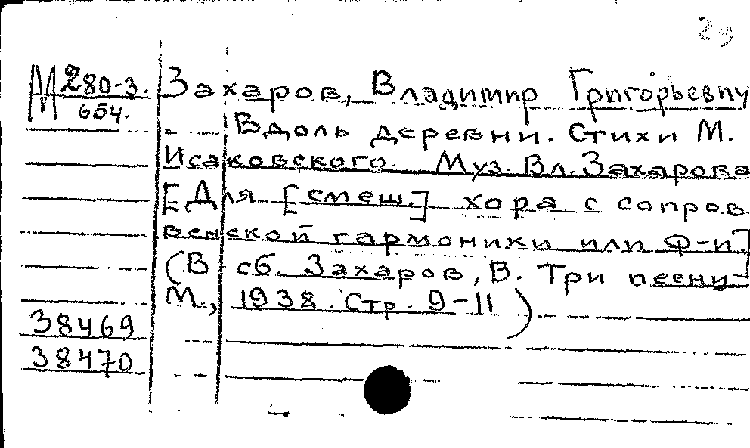 29
М 280-3. Захаров, Владимир Григорьевич
654.
Вдоль деревни. Стихи М.
Исаковского. Муз. Вл. Захарова
[Для [смеш.] хора с сопров
венской гармоники или Ф-п.]
(В сб. Захаров, В. Три песни-
М., 1938. Стр. 9-11)
38469
38470